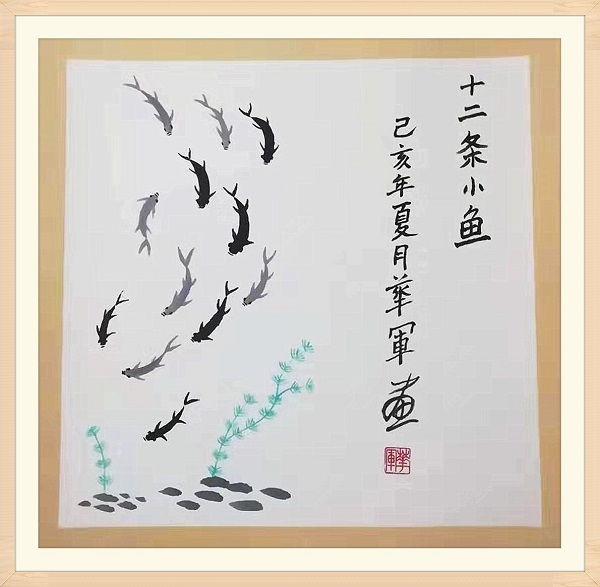 十二条小鱼
己亥年夏月华軍画
華軍